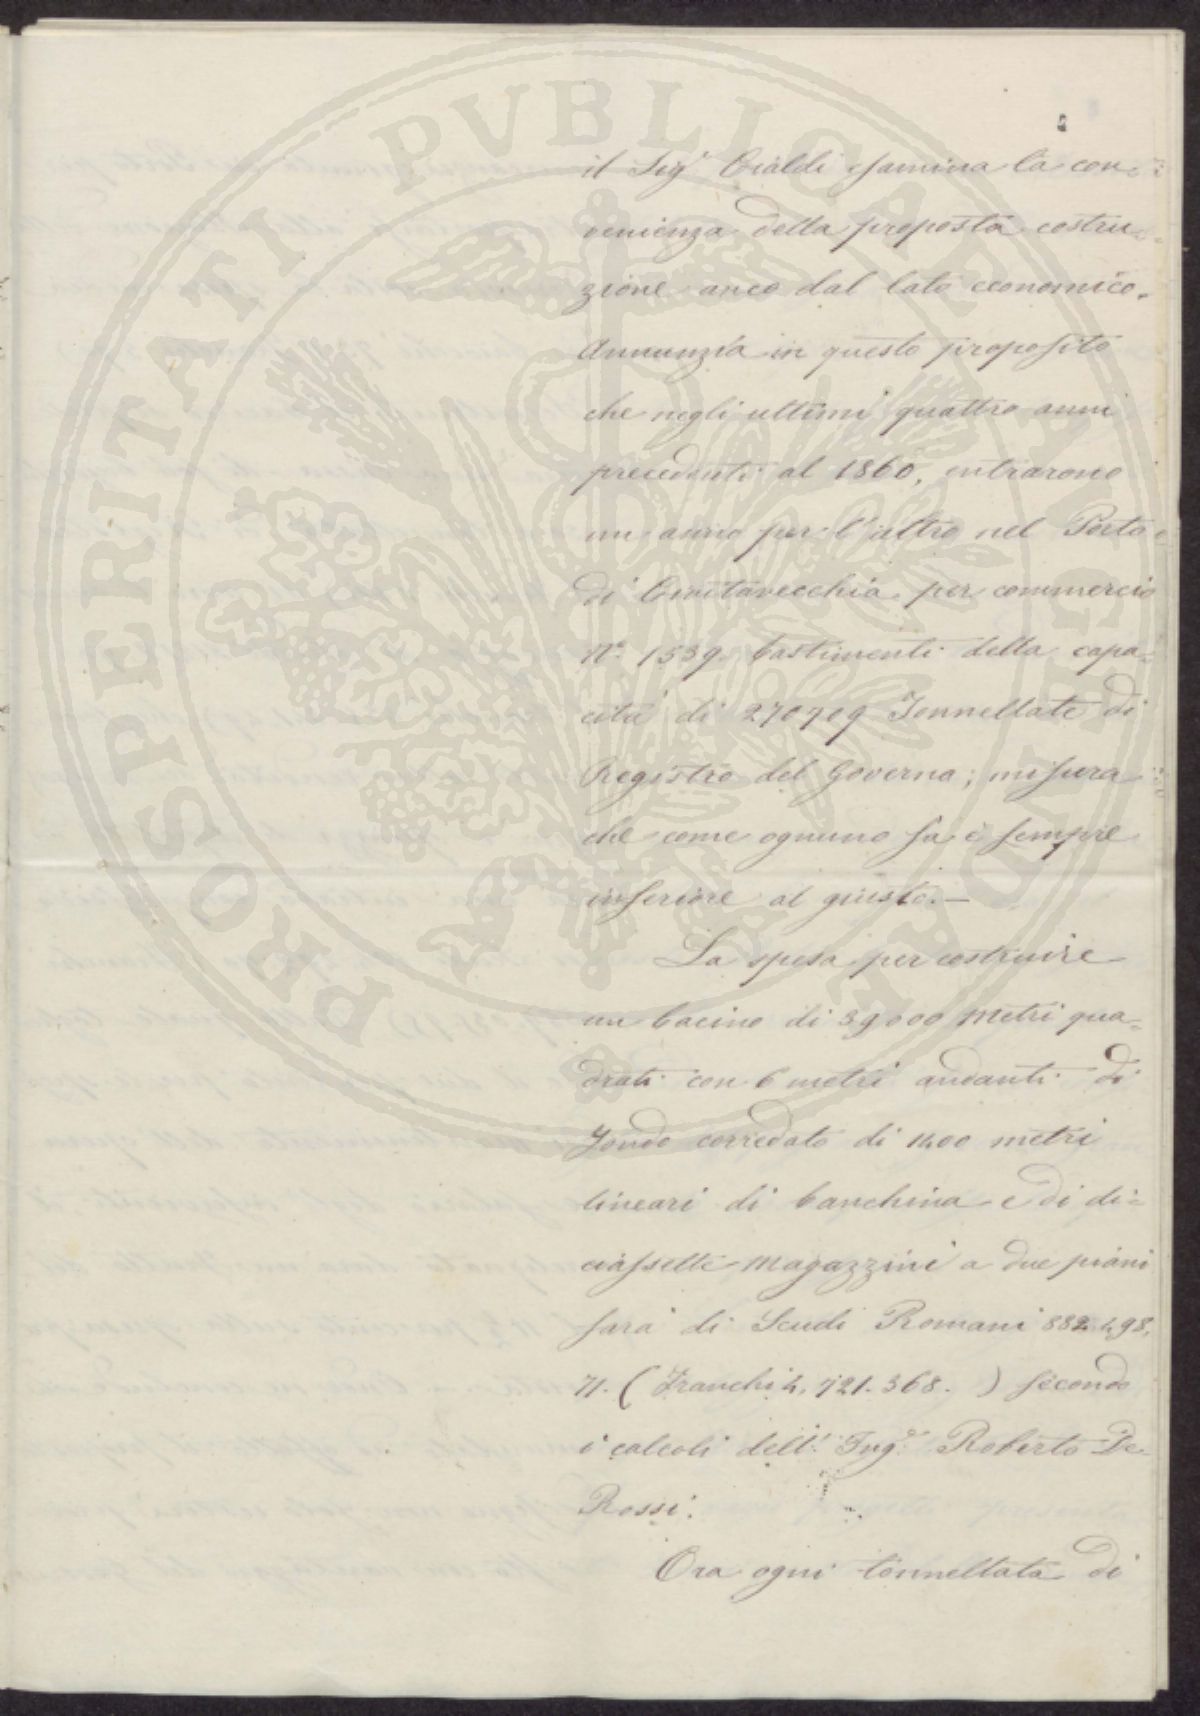 PROSPERITATI PVBLICAE AVGENDAE
il Sig.r Cialdi esamina la con=
venienza della proposta costru=
zione anco dal lato economico.
Annunzia in questo proposito
che negli ultimi quattro anni
precedenti al 1860, entrarono
un anno per l'altro nel Porto
di Civitavecchia per commercio
N.o 1539 bastimenti della capa=
cità di 270709 Tonnellate di
Registro del Governo; misura
che come ognuno sa è sempre
inferiore al giusto.—
La spesa per costruire
un bacino di 39000 metri qua=
drati con 6 metri andanti di
fondo corredato di 1400 metri
lineari di banchina e di di=
ciassette magazzini a due piani
sarà di Scudi Romani 882.498,
71. (Franchi 4,721.368.) secondo
i calcoli dell' Ing.e Roberto De
Rossi.
Ora ogni tonnellata di